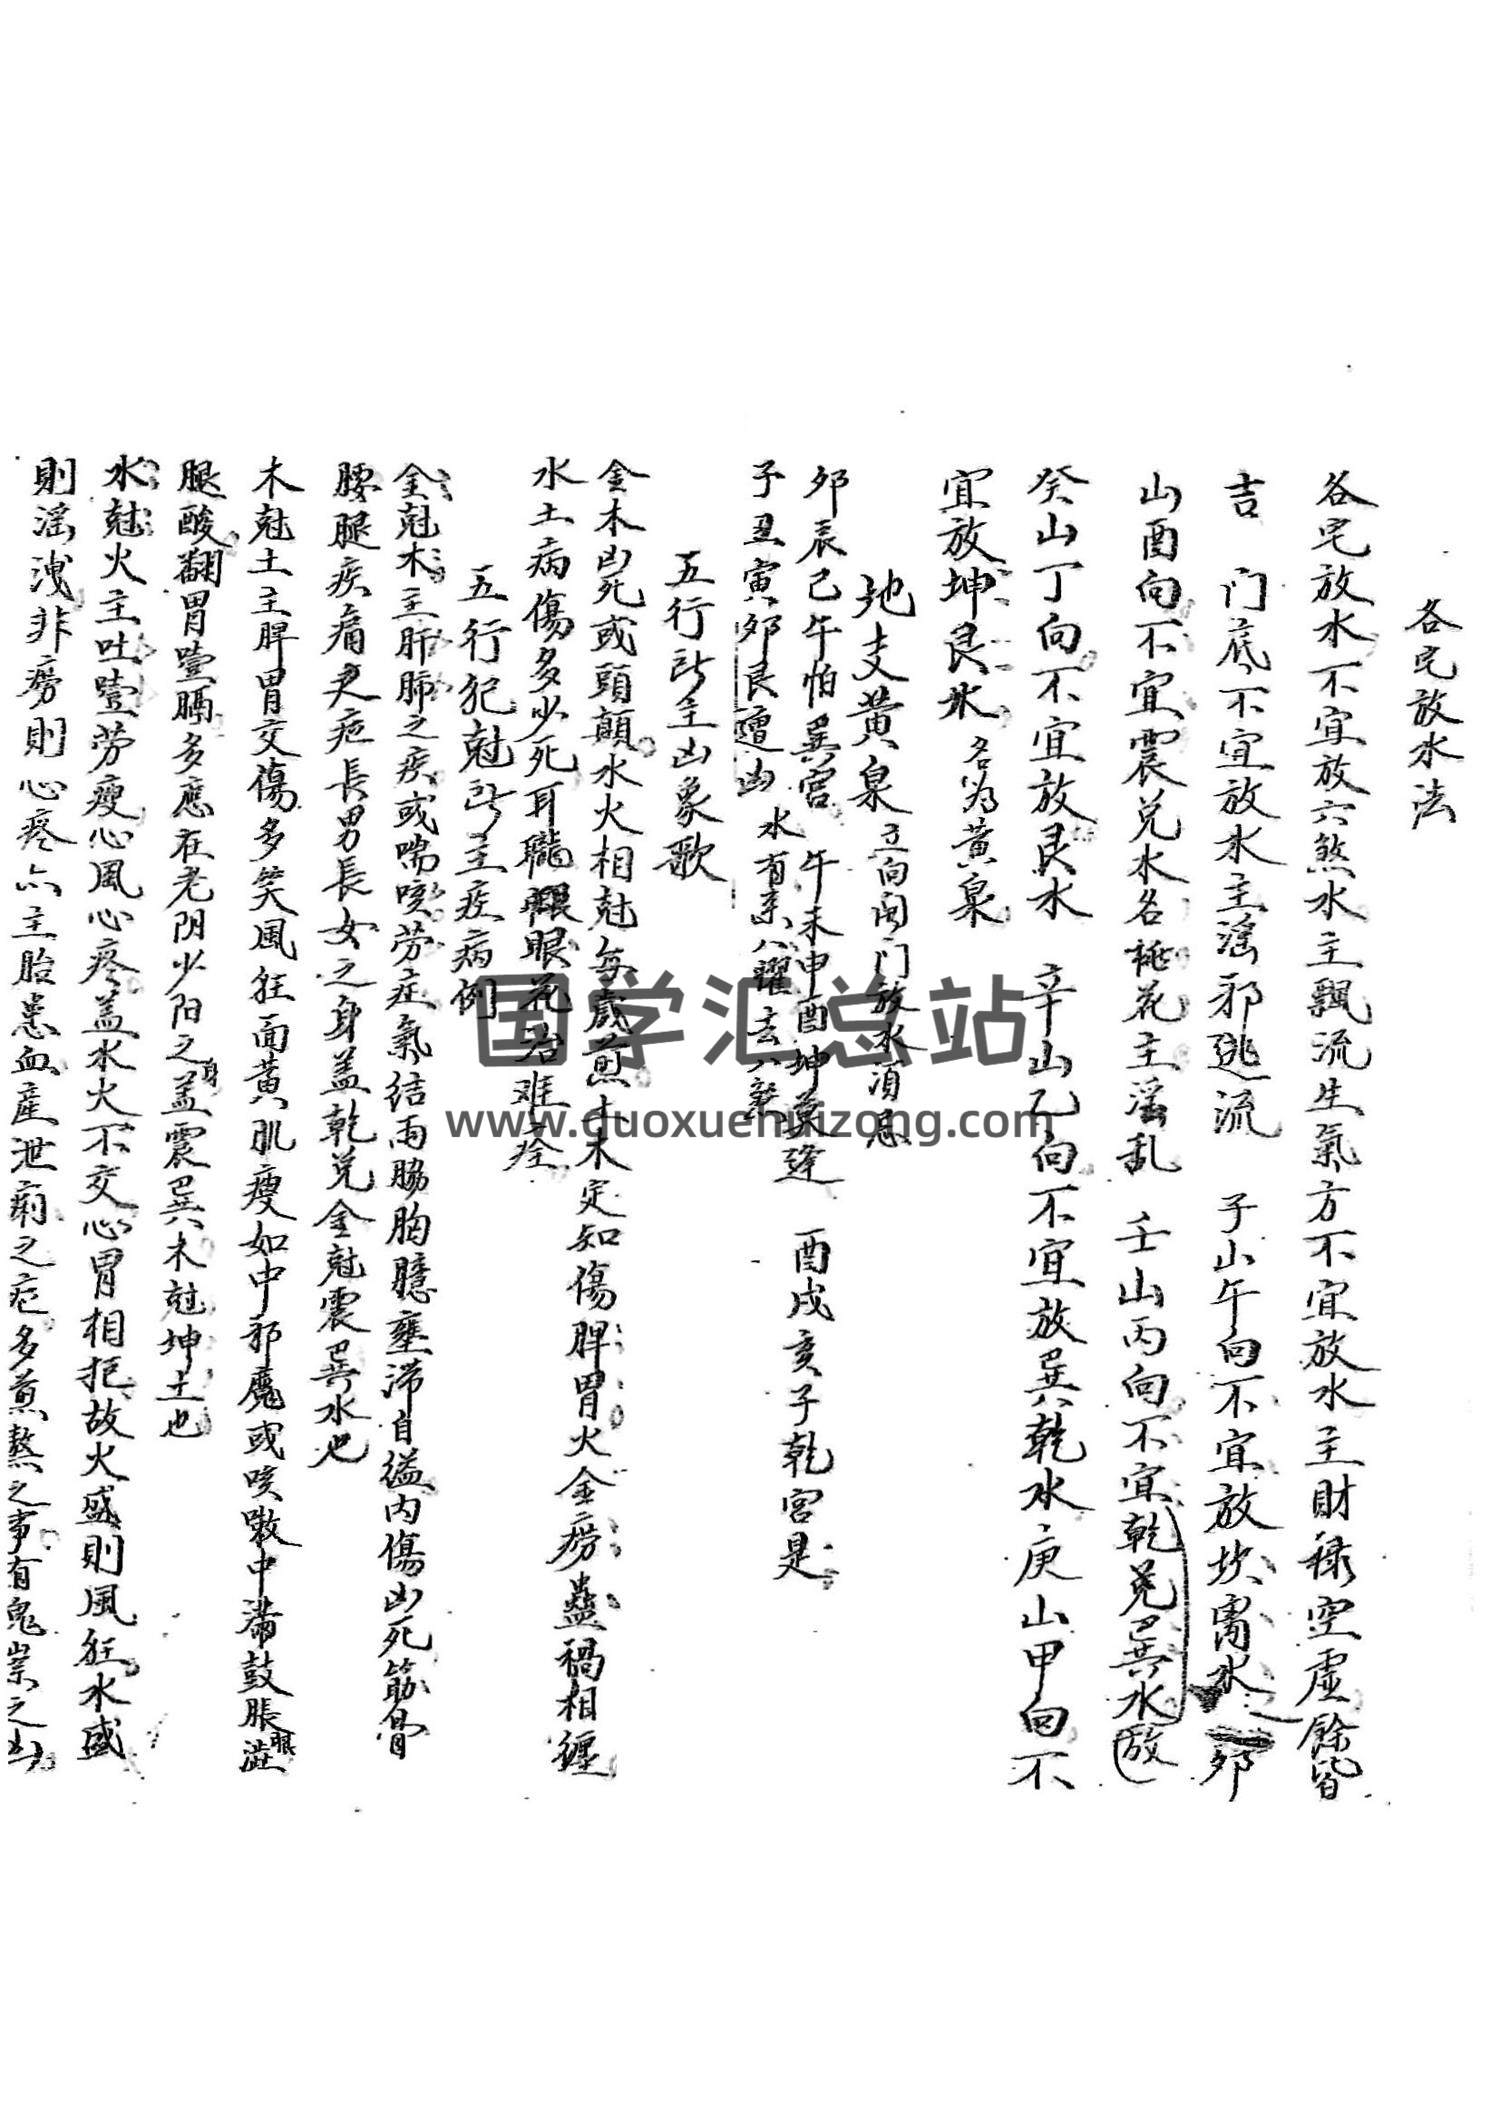 各宅放水法
各宅放水不宜放六煞水主飄流生氣方不宜放水主財祿空虛餘皆
吉 门底不宜放水主滛邪逃流 子山午向不宜放坎离水 卯
山酉向不宜震兑水名桃花主滛乱 壬山丙向不宜乾兑巽水放
癸山丁向不宜放艮水 辛山乙向不宜放巽乾水庚山甲向不
宜放坤艮水 名為黃泉
地支黃泉 立向開门放水須忌
卯辰巳午怕巽宫 午未申酉坤莫逢 酉戌亥子乾宫是
子丑寅卯艮遭凶 水有来八曜去八煞
五行所主凶象歌
金木凶死或頭顛水火相尅每歲煎土木定知傷脾胃火金痨蠱禍相纏
水土病傷多少死耳聾眼花治难痊
五行犯尅所主疾病例
金尅木主肝肺之疾或喘咳劳症氣结两脇胸臆壅滞自縊内傷凶死筋骨
腰腿疾痛之疤長男長女之身盖乾兑金尅震巽木也
木尅土主脾胃交傷多笑風狂面黃肌瘦如中邪魔或咳嗽中滿鼓脹眼澁
腿酸翻胃噎膈多應在老阴少阳之身盖震巽木尅坤土也
水尅火主吐噎劳瘦心風心疼盖水火不交心胃相拒故火盛則風狂水盛
則滛洩非痨則心疼亦主胎患血產泄痢之疤多煎熬之事有鬼祟之凶
国学汇总站
www.guoxuehuizong.com